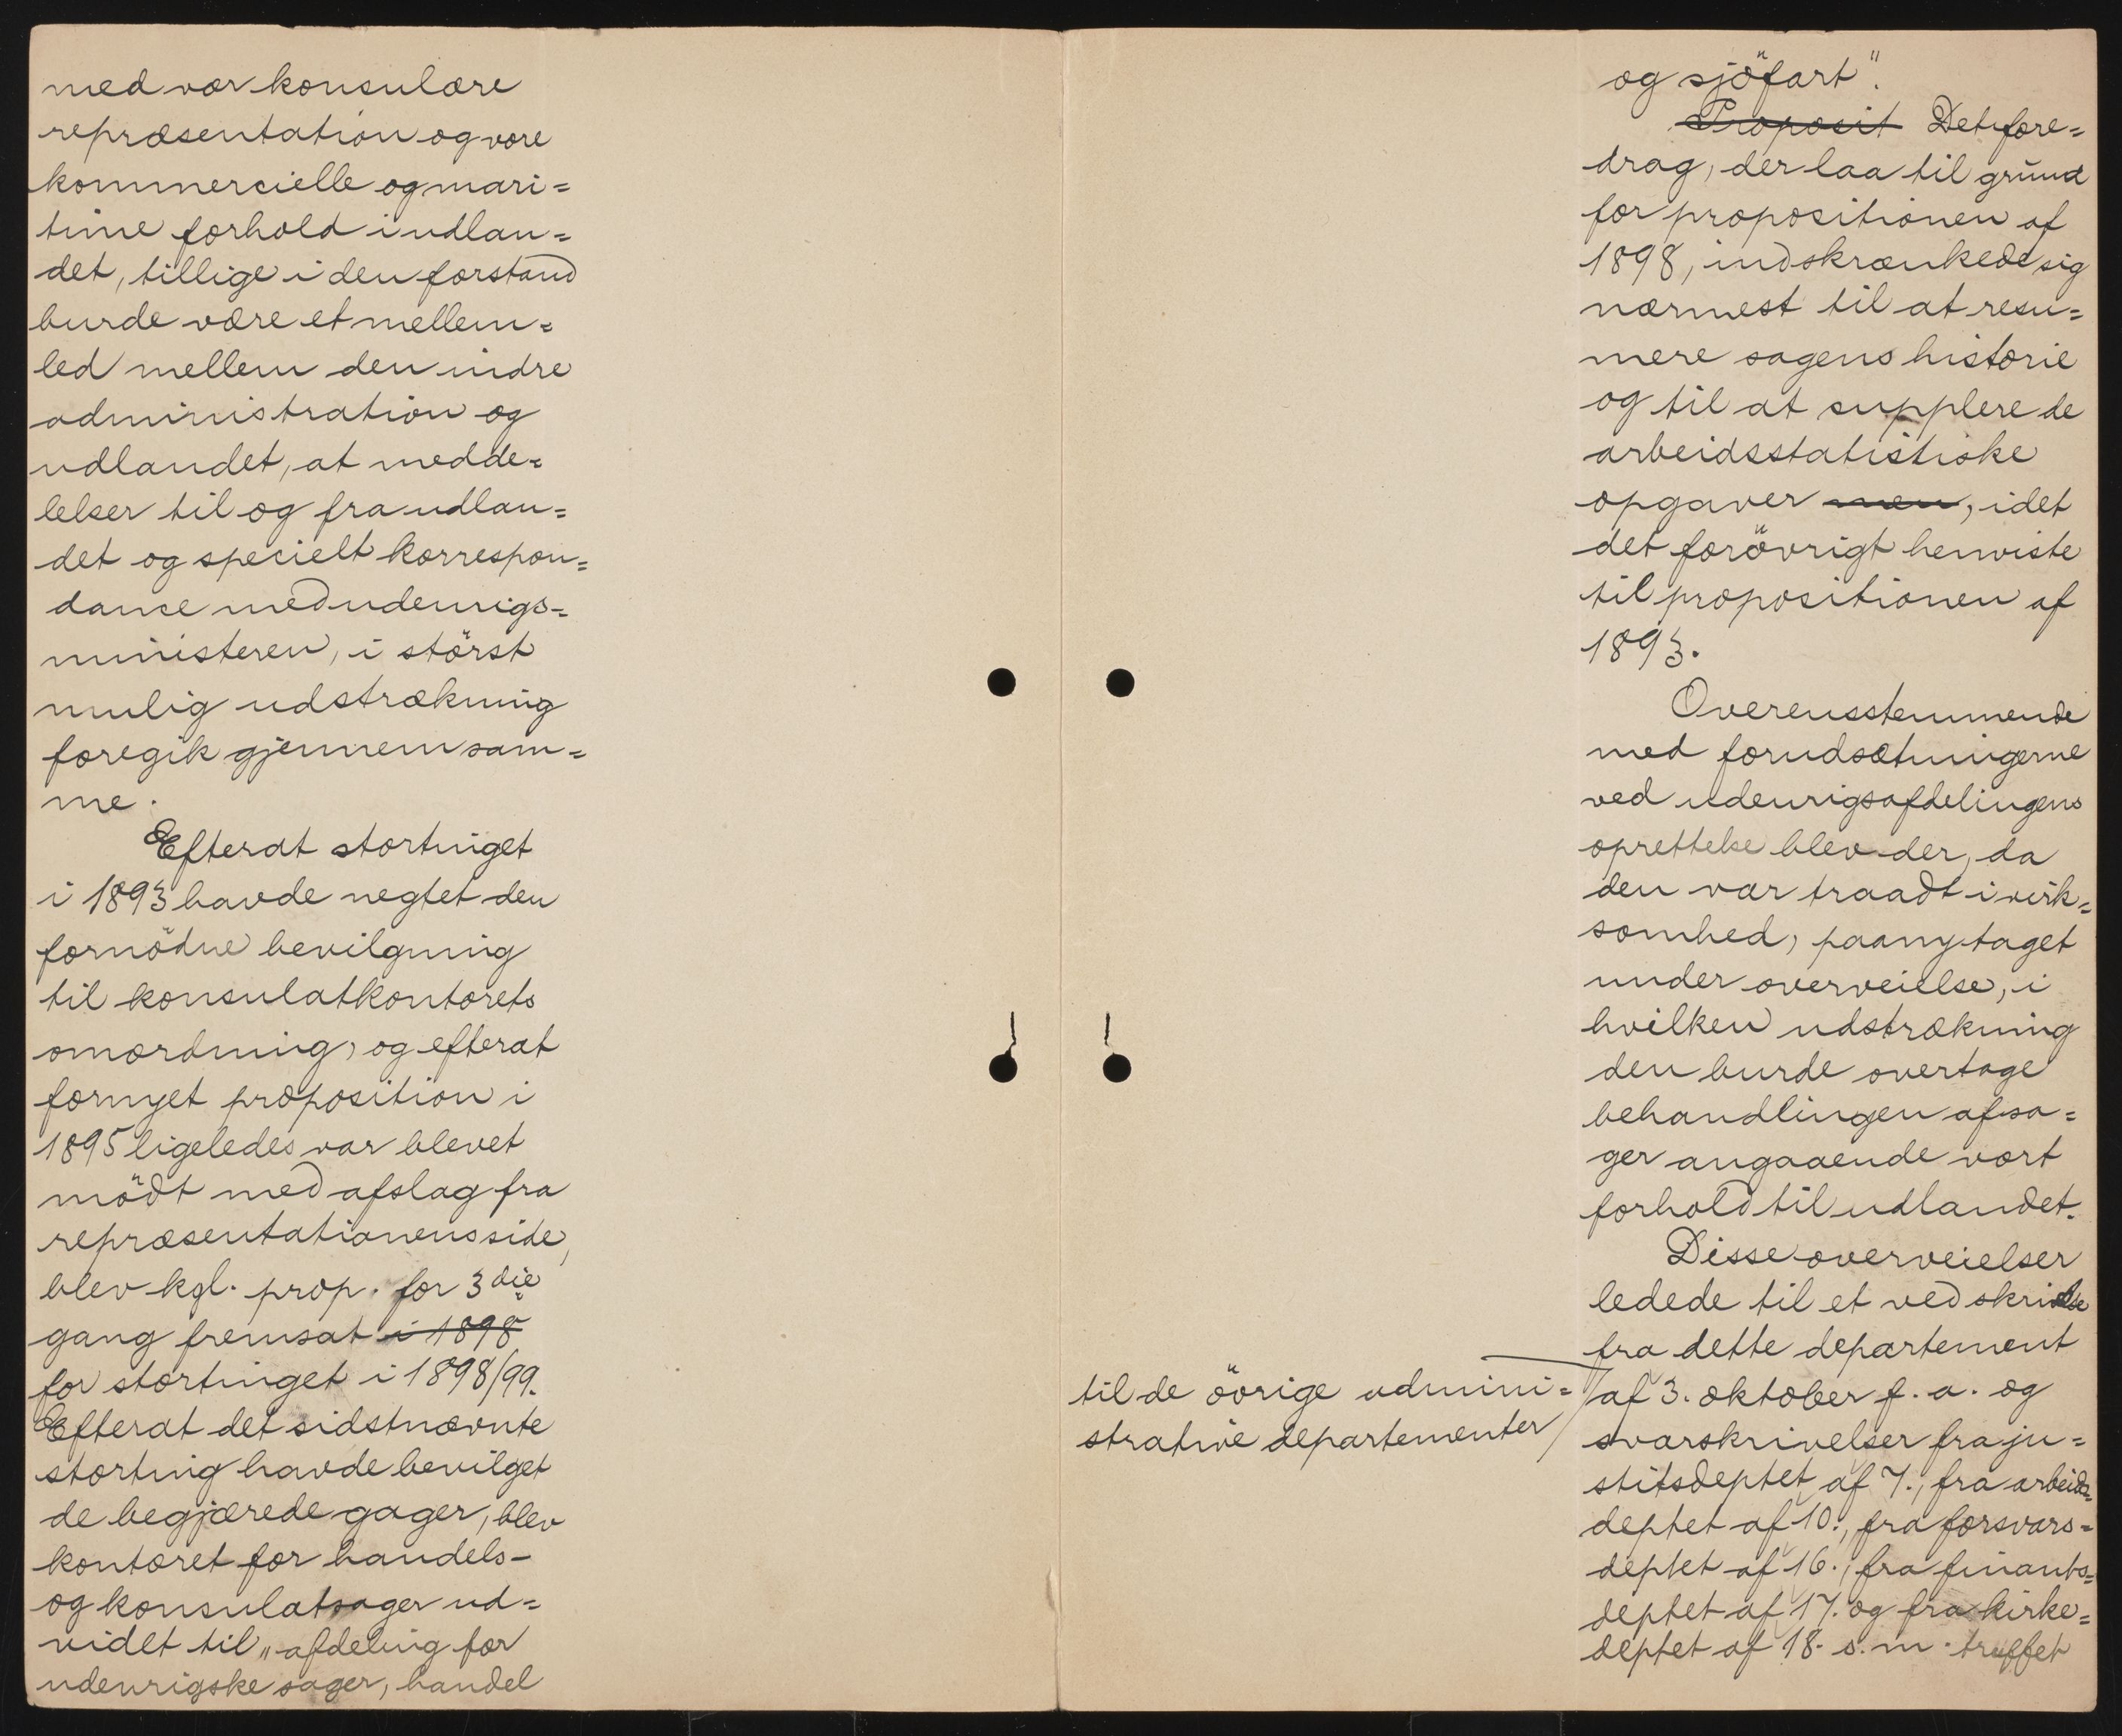 med vor konsulære
repræsentation og vore
kommercielle og mari=
time forhold i udlan=
det, tillige i den forstand
burde være et mellem=
led mellem den indre
administration og
udlandet, at medde=
lelser til og fra udlan=
det og specielt korrespon=
dance med udenrigs=
ministeren, i störst
mulig udstrækning
foregik gjennem sam=
me.
Efterat stortinget
i 1893 havde negtet den
fornödne bevilgning
til konsulatkontorets
omordning, og efterat
fornyet proposition i
1895 ligeledes var blevet
mödt med afslag fra
repræsentationens side,
blev kgl. prop. for 3die
gang fremsat i 1898
for stortinget i 1898/99.
Efterat det sidstnævnte
storting havde bevilget
de begjærede gager, blev
kontoret for handels-
og konsulatsager ud=
videt til „afdeling for
udenrigske sager, handel
og sjöfart".
Proposit Det fore=
drag, der laa til grund
for propositionen af
1898, indskrænkede sig
nærmest til at resu=
mere sagens historie
og til at supplere de
arbeidsstatistiske
opgaver men, idet
det forövrigt henviste
til propositionen af
1893.
Overensstemmende
med forudsætningerne
ved udenrigsafdelingens
oprettelse blev der, da
den var traadt i virk=
somhed, paany taget
under overveielse, i
hvilken udstrækning
den burde overtage
behandlingen af sa=
ger angaaende vort
forhold til udlandet.
Disse overveielser
ledede til et ved skrivelse
fra dette departement
til de övrige admini=
strative departementer
af 3. oktober f. a. og
svarskrivelser fra ju=
stitsdeptet af 7., fra arbeids=
deptet af 10., fra forsvars=
deptet af 16., fra finants=
deptet af 17. og fra kirke=
deptet af 18. s. m. truffet